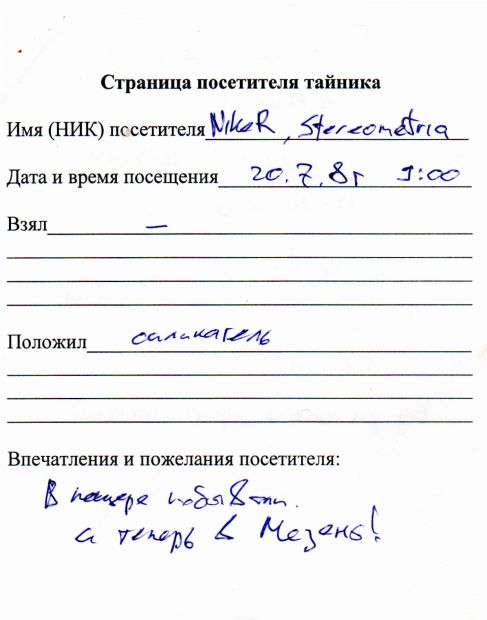 Страница посетителя тайника
Имя (НИК) посетителя NikeR, Stereometria
Дата и время посещения 20.7.8г 9:00
Взял —
Положил силикагель
Впечатления и пожелания посетителя:
В пещере побывали.
а теперь в Мезень!